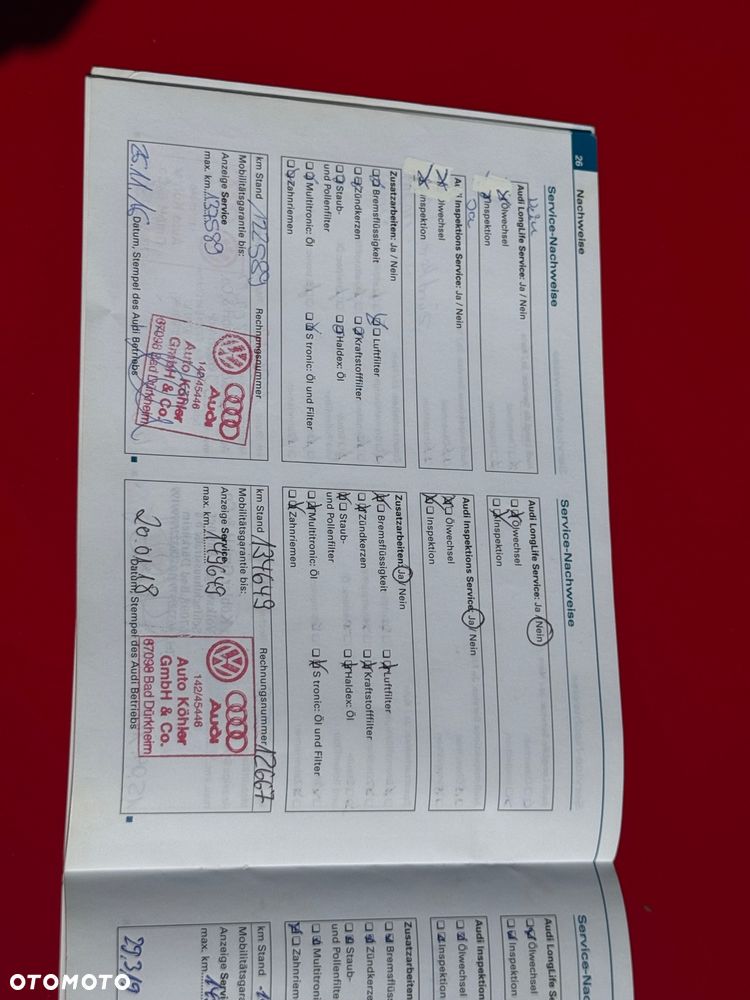 26
Nachweise
Service-Nachweise
Nein
Audi LongLife Service: Ja / Nein
Ölwechsel
Inspektion
Ja
Inspektions Service: Ja / Nein
Ölwechsel
Inspektion
Zusatzarbeiten: Ja / Nein
Bremsflüssigkeit
Luftfilter
Zündkerzen
Kraftstofffilter
Staub-
und Pollenfilter
Haldex: Öl
Multitronic: Öl
S tronic: Öl und Filter
Zahnriemen
km Stand 122589
Rechnungsnummer
Mobilitätsgarantie bis:
Anzeige Service
max. km. 137589
25.11.16
Datum, Stempel des Audi Betriebs
Audi
142/45446
Auto Köhler
GmbH & Co.
67098 Bad Dürkheim
Service-Nachweise
Audi LongLife Service: Ja / Nein
Ölwechsel
Inspektion
Audi Inspektions Service: Ja / Nein
Ölwechsel
Inspektion
Zusatzarbeiten: Ja / Nein
Bremsflüssigkeit
Luftfilter
Zündkerzen
Kraftstofffilter
Staub-
und Pollenfilter
Haldex: Öl
Multitronic: Öl
S tronic: Öl und Filter
Zahnriemen
km Stand 134649
Rechnungsnummer 12667
Mobilitätsgarantie bis:
Anzeige Service
max. km. 149649
20.01.18
Datum, Stempel des Audi Betriebs
Audi
142/45446
Auto Köhler
GmbH & Co.
67098 Bad Dürkheim
Service-Nac
Audi LongL
Ölwechsel
Inspektion
Audi Inspektion
Ölwechsel
Inspektion
Zusatzarbeiten
Bremsflüss
Zündkerze
Staub-
und Pollenfilter
Multitroni
Zahnriem
km Stand
Mobilitätsgara
Anzeige Servi
max. km.
29.3.19
OTOMOTO